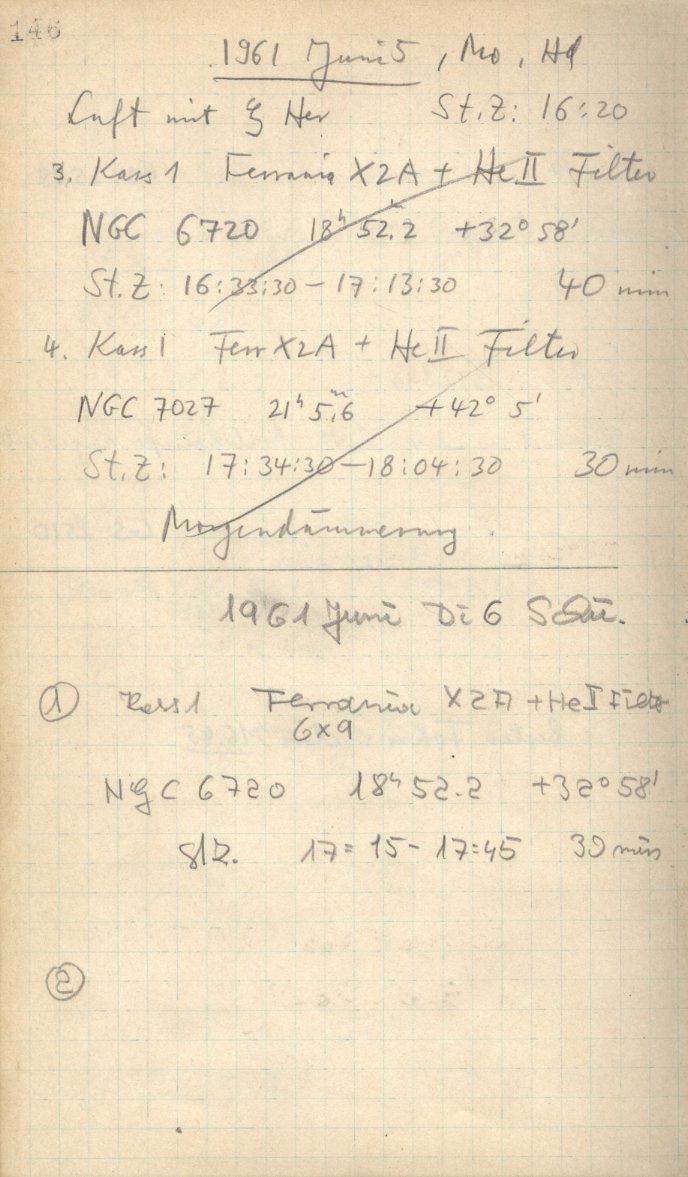 146
1961 Juni 5, Mo, Hd
Luft mit ξ Her St.Z: 16:20
3. Kass 1 Ferrania X2A + He II Filter
NGC 6720 18ʰ 52.ᵐ2 +32° 58'
St.Z: 16:33:30 – 17:13:30 40 min
4. Kass 1 Ferr X2A + He II Filter
NGC 7027 21ʰ 5.ᵐ6 +42° 5'
St.Z: 17:34:30 – 18:04:30 30 min
Morgendämmerung.
1961 Juni Di 6
① Kass 1 Ferrania X2A + He I Filter
6x9
NGC 6720 18ʰ 52.2 +32° 58'
StZ. 17=15 – 17=45 30 min
②